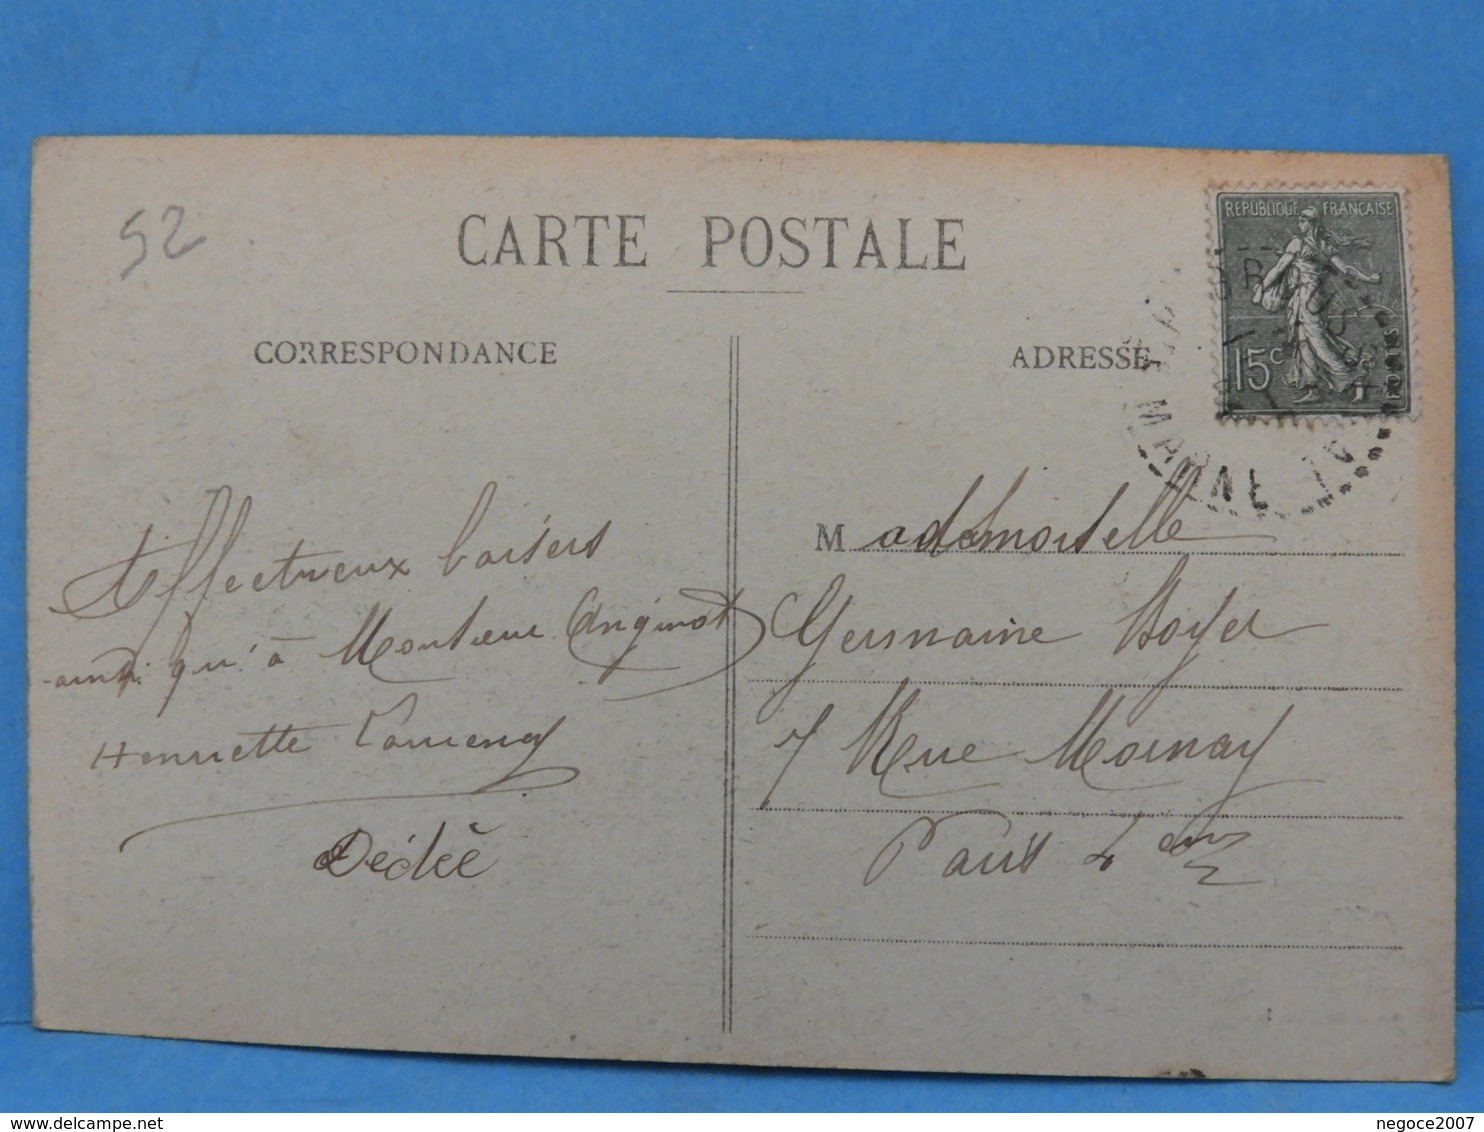 52
CARTE POSTALE
CORRESPONDANCE
ADRESSE
REPUBLIQUE FRANÇAISE
15c
POSTES
MARNE
Affectueux baisers
ainsi qu'à Monsieur Anginot
Henriette
Dédée
Mademoiselle
Germaine Boyer
7 Rue Mornay
Paris 4 em
negoce2007